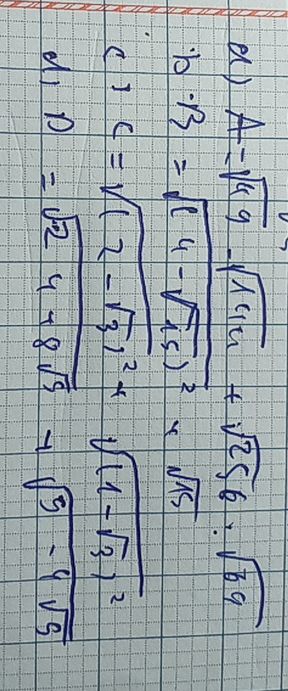 a) A = √49 - √144 + √256 : √64
b. B = √(4 - √15)² + √15
c) C = √(2 - √3)² + √(1 - √3)²
d) D = √24 + 8√5 + √9 - 4√5